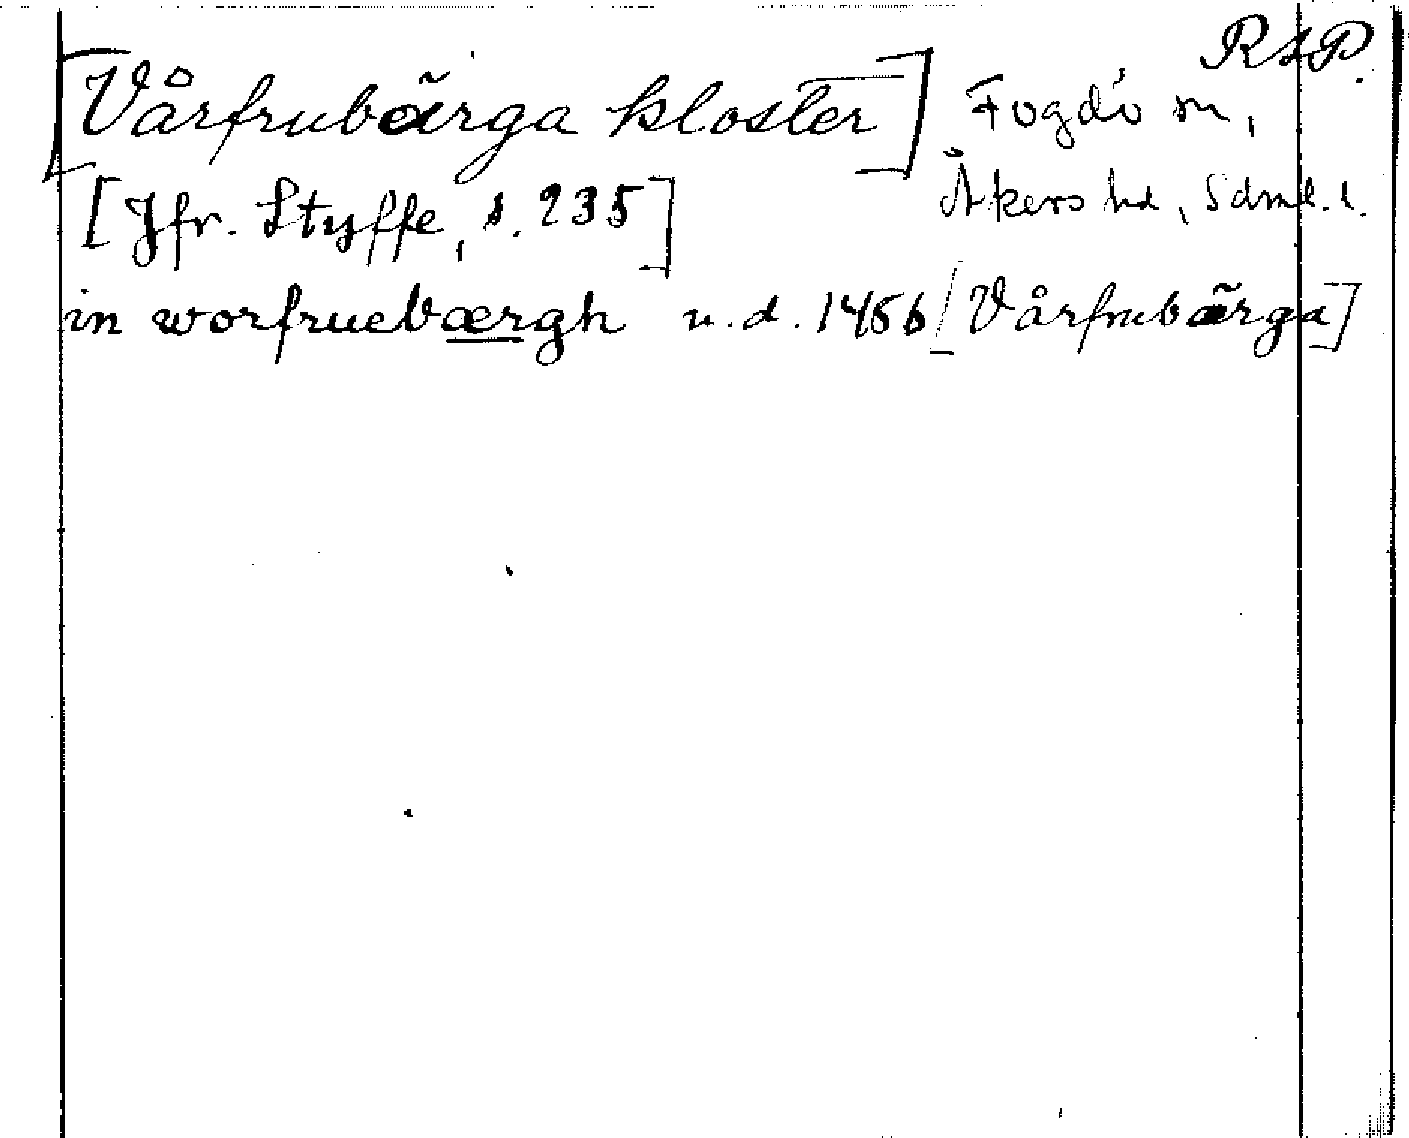 RAP.
[Vårfrubärga kloster] Fogdö sn,
[Jfr. Styffe, s. 235] Åkers hd, Sdml. l.
in worfruebærgh u.d. 1456 [Vårfrubärga]